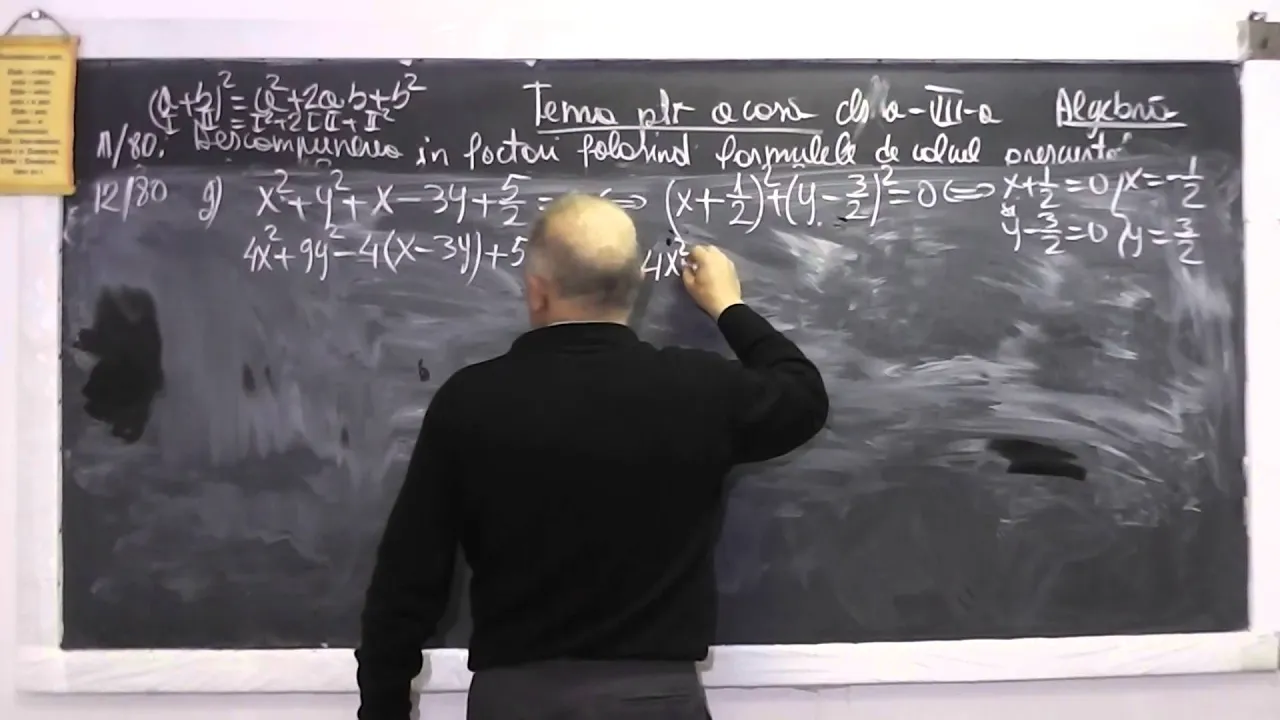 (a+b)² = a²+2ab+b² Tema ptr acasă cls a-VIII-a Algebră
I II = I²+2 I II + II²
11/80. Descompunerea în factori folosind formulele de calcul prescurtat
12/80 g) x²+y²+x-3y+5/2 = ⇔ (x+1/2)²+(y-3/2)²=0 ⇔ x+1/2=0, x=-1/2
y-3/2=0, y=3/2
4x²+9y²-4(x-3y)+5 4x²